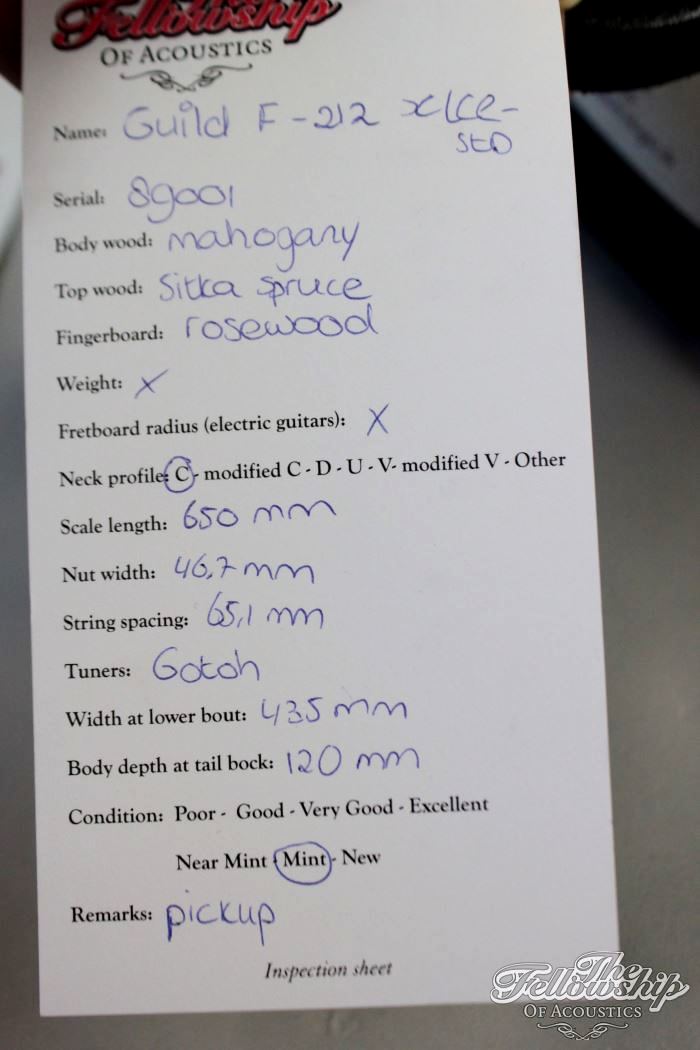 Fellowship
OF ACOUSTICS
Name: Guild F-212 xlce-
StD
Serial: 89001
Body wood: mahogany
Top wood: Sitka spruce
Fingerboard: rosewood
Weight: X
Fretboard radius (electric guitars): X
Neck profile: C - modified C - D - U - V- modified V - Other
Scale length: 650 mm
Nut width: 46,7 mm
String spacing: 65,1 mm
Tuners: Gotoh
Width at lower bout: 435 mm
Body depth at tail bock: 120 mm
Condition: Poor - Good - Very Good - Excellent
Near Mint - Mint - New
Remarks: pickup
Inspection sheet
The
Fellowship
OF ACOUSTICS